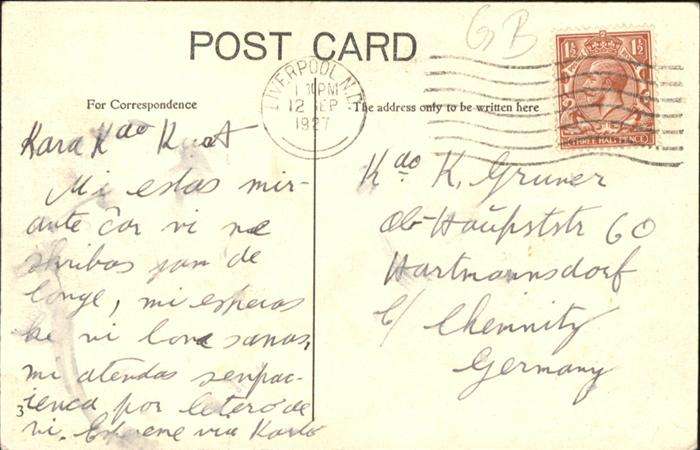 POST CARD
GB
1½ 1½
THREE HALFPENCE
LIVERPOOL
PM
12 SEP
1927
For Correspondence
The address only to be written here
Kara Kdo
Mi estas mir-
ante ĉar vi ne
skribas jam de
longe, mi esperas
ke vi bone sanas,
mi atendas senpac-
ienca por letero de
vi. via Karlo
3
Kdo K. Gruner
Ob-Hauptstr 60
Hartmannsdorf
b/ Chemnitz
Germany